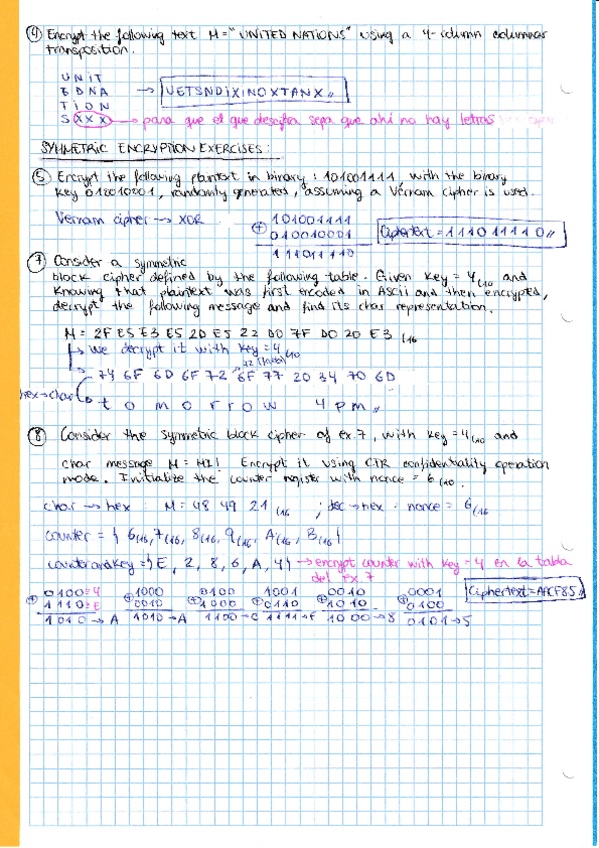 ④ Encrypt the following text M = "UNITED NATIONS" using a 4-column columnar
transposition.
U N I T
E D N A → UETSNDIXINOXTANX //
T I O N
S X X X → para que el que descifra sepa que ahí no hay letras
SYMMETRIC ENCRYPTION EXERCISES:
⑤ Encrypt the following plaintext in binary: 101001111, with the binary
key 010010001, randomly generated, assuming a Vernam cipher is used.
Vernam cipher → XOR ⊕ 101001111
010010001
111011110
Ciphertext = 111011110 //
⑦ Consider a symmetric
block cipher defined by the following table. Given key = 4(10 and
knowing that plaintext was first encoded in ASCII and then encrypted,
decrypt the following message and find its char representation.
M = 2F E5 E3 E5 2D E5 22 D0 7F D0 20 E3 (16
→ We decrypt it with key = 4(10
→ 74 6F 6D 6F 72 6F 77 20 34 70 6D
hex → char
t o m o r r o w 4 p m //
⑧ Consider the symmetric block cipher of ex. 7, with key = 4(10 and
char message M = HI! Encrypt it using CTR confidentiality operation
mode. Initialize the counter register with nonce = 6(10.
char → hex : M = 48 49 21 (16 ; dec → hex : nonce = 6(16
counter = { 6(16, 7(16, 8(16, 9(16, A(16, B(16 }
counterandkey = { E, 2, 8, 6, A, 4 } → encrypt counter with key = 4 en la tabla
del ex 7
⊕ 0100 = 4 ⊕ 1000 ⊕ 0100 ⊕ 1001 ⊕ 0010 ⊕ 0001
1110 = E 0010 1000 0110 1010 0100
1010 → A 1010 → A 1100 → C 1111 → F 1000 → 8 0101 → 5
Ciphertext = AACF85 //